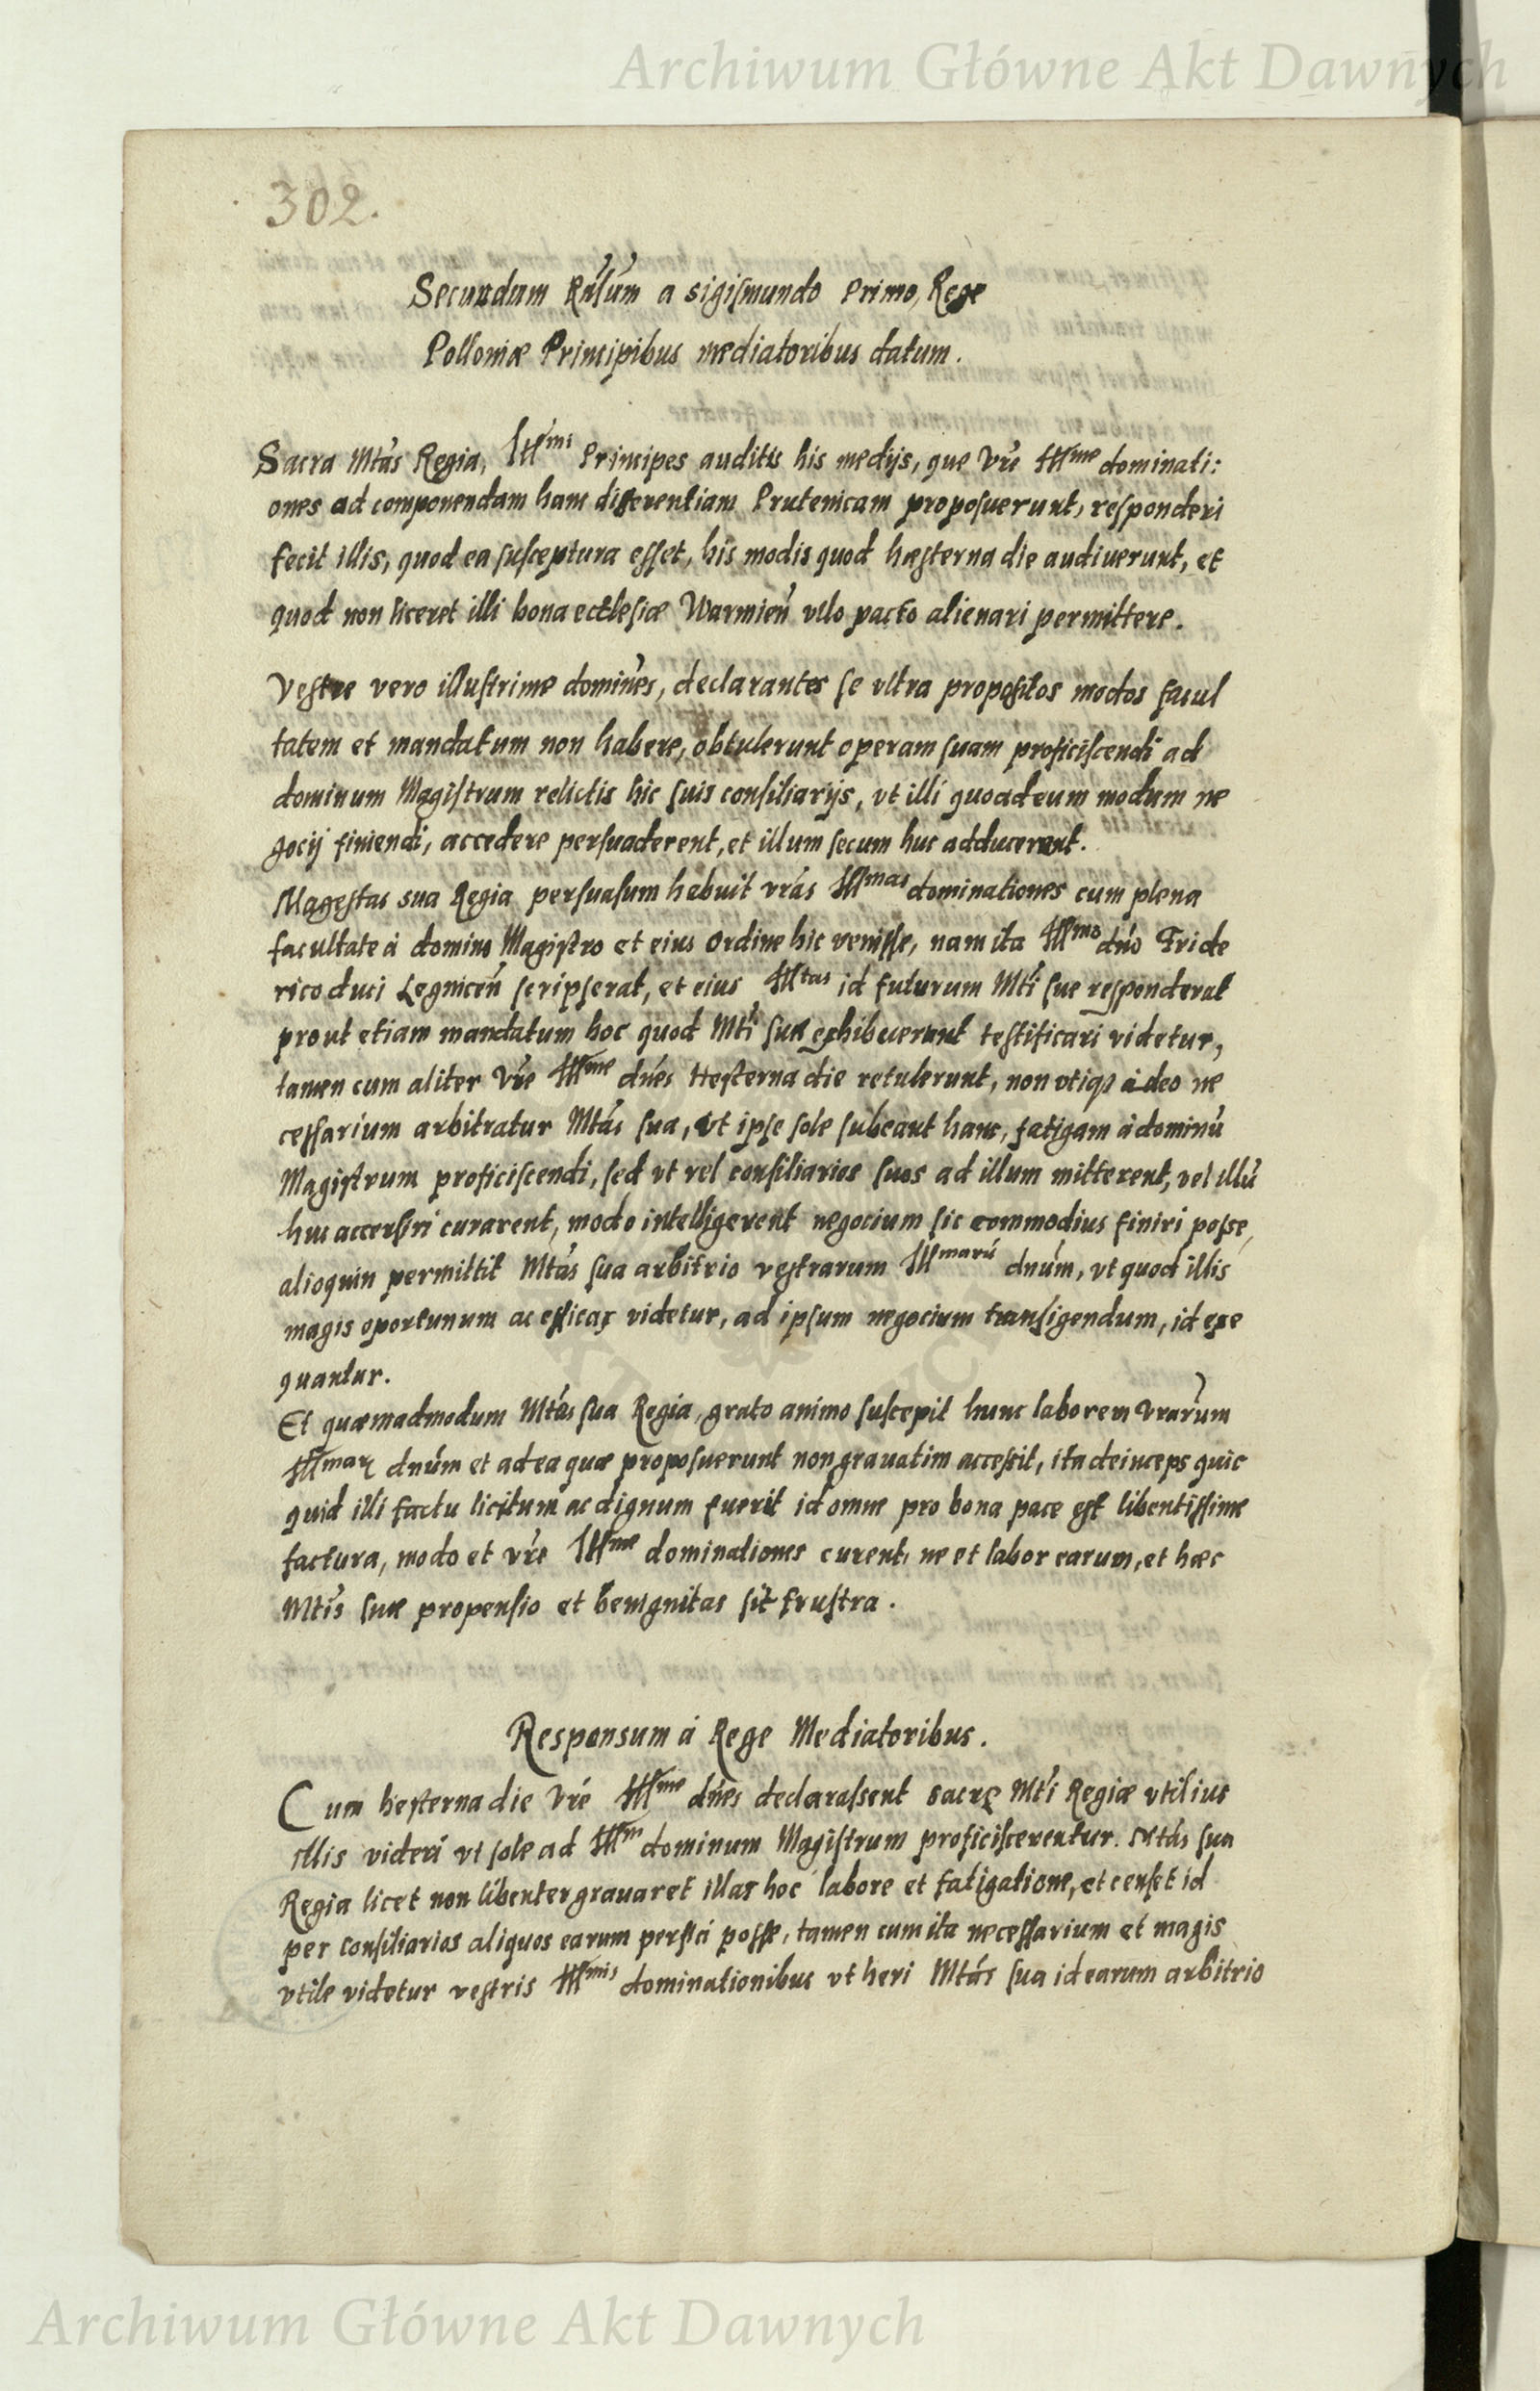 Archiwum Główne Akt Dawnych
302.
Secundum Rńsum a sigismundo Primo, Rege
Polloniæ Principibus mediatoribus datum.
Sacra Mtás Regia, Illmi Principes auditis his medijs, que Vrẽ Illme dominati:
ones ad componendam hanc differentiam Prutenicam proposuerunt, responderi
fecit illis, quod ea susceptura esset, his modis quod hæsterna die audiverunt, et
quod non liceret illi bona ecclesiæ Warmień vllo pacto alienari permittere.
Vestre vero illustrime domines, declarantes se vltra propositos modos facul
tatem et mandatum non habere, obtulerunt operam suam proficiscendi ad
dominum Magistrum relictis hic suis consiliarijs, vt illi quoad eum modum ne
gocij finiendi, accedere persuaderent, et illum secum huc adducerent.
Magestas sua Regia persuasum habuit vrás Illmas dominationes cum plena
facultate á domino Magistro et eius Ordine hic venisse, nam ita Illmo dńo Fride
rico duci Legniceń scripserat, et eius Illtas id futurum Mtí sue responderat
prout etiam mandatum hoc quod Mtí suæ exhibuerunt testificari videtur,
tamen cum aliter Vrẽ Illme dńes Hesterna die retulerunt, non vtiqz adeo ne
cessarium arbitratur Mtás sua, vt ipse sole subeant hanc, fatigam á dominũ
Magistrum proficiscendi, sed vt vel consiliarios suos ad illum mitterent, vel illũ
huc accersiri curarent, modo intelligerent negocium sic commodius finiri posse,
alioquin permittit Mtás sua arbitrio vestrarum Illmarũ dnúm, vt quod illis
magis oportunum ac efficax videtur, ad ipsum negocium transigendum, id exe
quantur.
Et quæmadmodum Mtás sua Regia, grato animo suscepit hunc laborem Vrarum
Illmar dnúm et ad ea quæ proposuerunt non gravatim accessit, ita deinceps quic
quid illi factu licitum ac dignum fuerit id omne pro bona pace est libentissime
factura, modo et vrẽ Illme dominationes curent, ne et labor earum, et hæc
Mtís suæ propensio et benignitas sit frustra.
Responsum á Rege Mediatoribus.
Cum hesterna die Vré Illme dńes declarassent sacrę Mtí Regiæ vtilius
illis videri vt sole ad Illm dominum Magistrum proficiscerentur. Mtás sua
Regia licet non libenter gravaret illas hoc labore et fatigatione, et censet id
per consiliarios aliquos earum perfici posse, tamen cum ita necessarium et magis
vtile videtur vestris Illmis dominationibus vt heri Mtás sua id earum arbitrio
Archiwum Główne Akt Dawnych